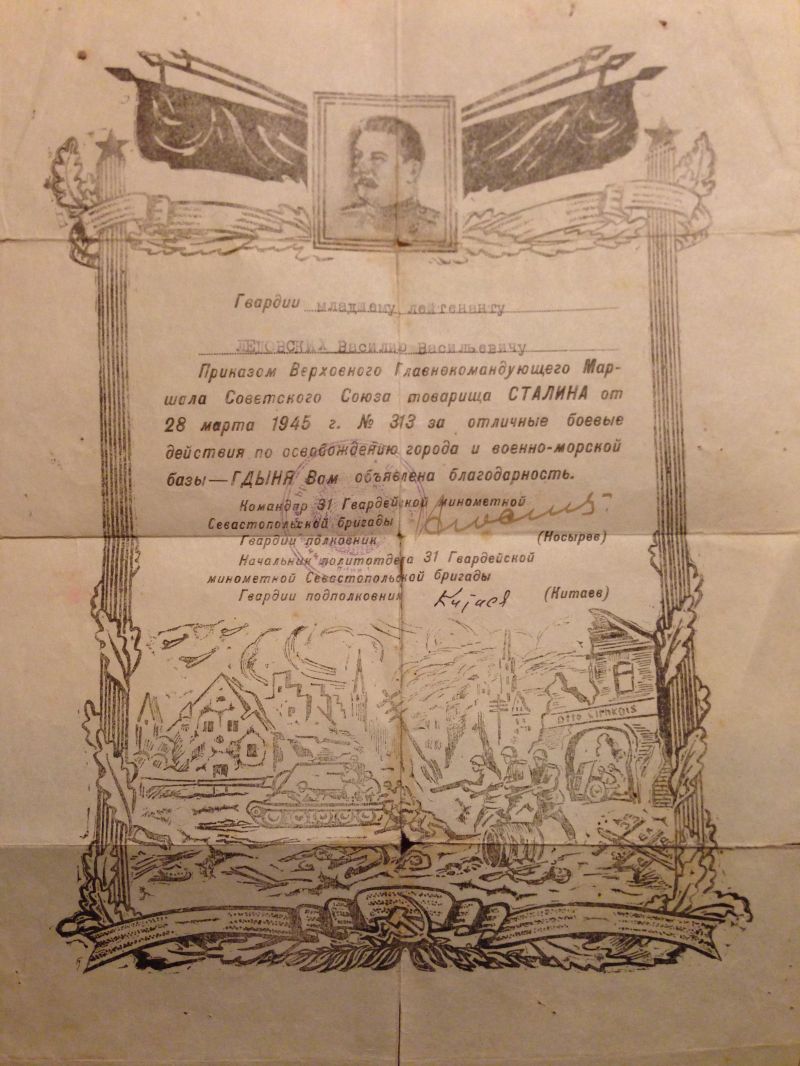 Гвардии младшему лейтенанту
Василию Васильевичу
Приказом Верховного Главнокомандующего Мар-
шала Советского Союза товарища СТАЛИНА от
28 марта 1945 г. № 313 за отличные боевые
действия по освобождению города и военно-морской
базы—ГДЫНЯ Вам объявлена благодарность.
Командир 31 Гвардейской минометной
Севастопольской бригады
Гвардии полковник (Носырев)
Начальник политотдела 31 Гвардейской
минометной Севастопольской бригады
Гвардии подполковник Китаев (Китаев)
Otto